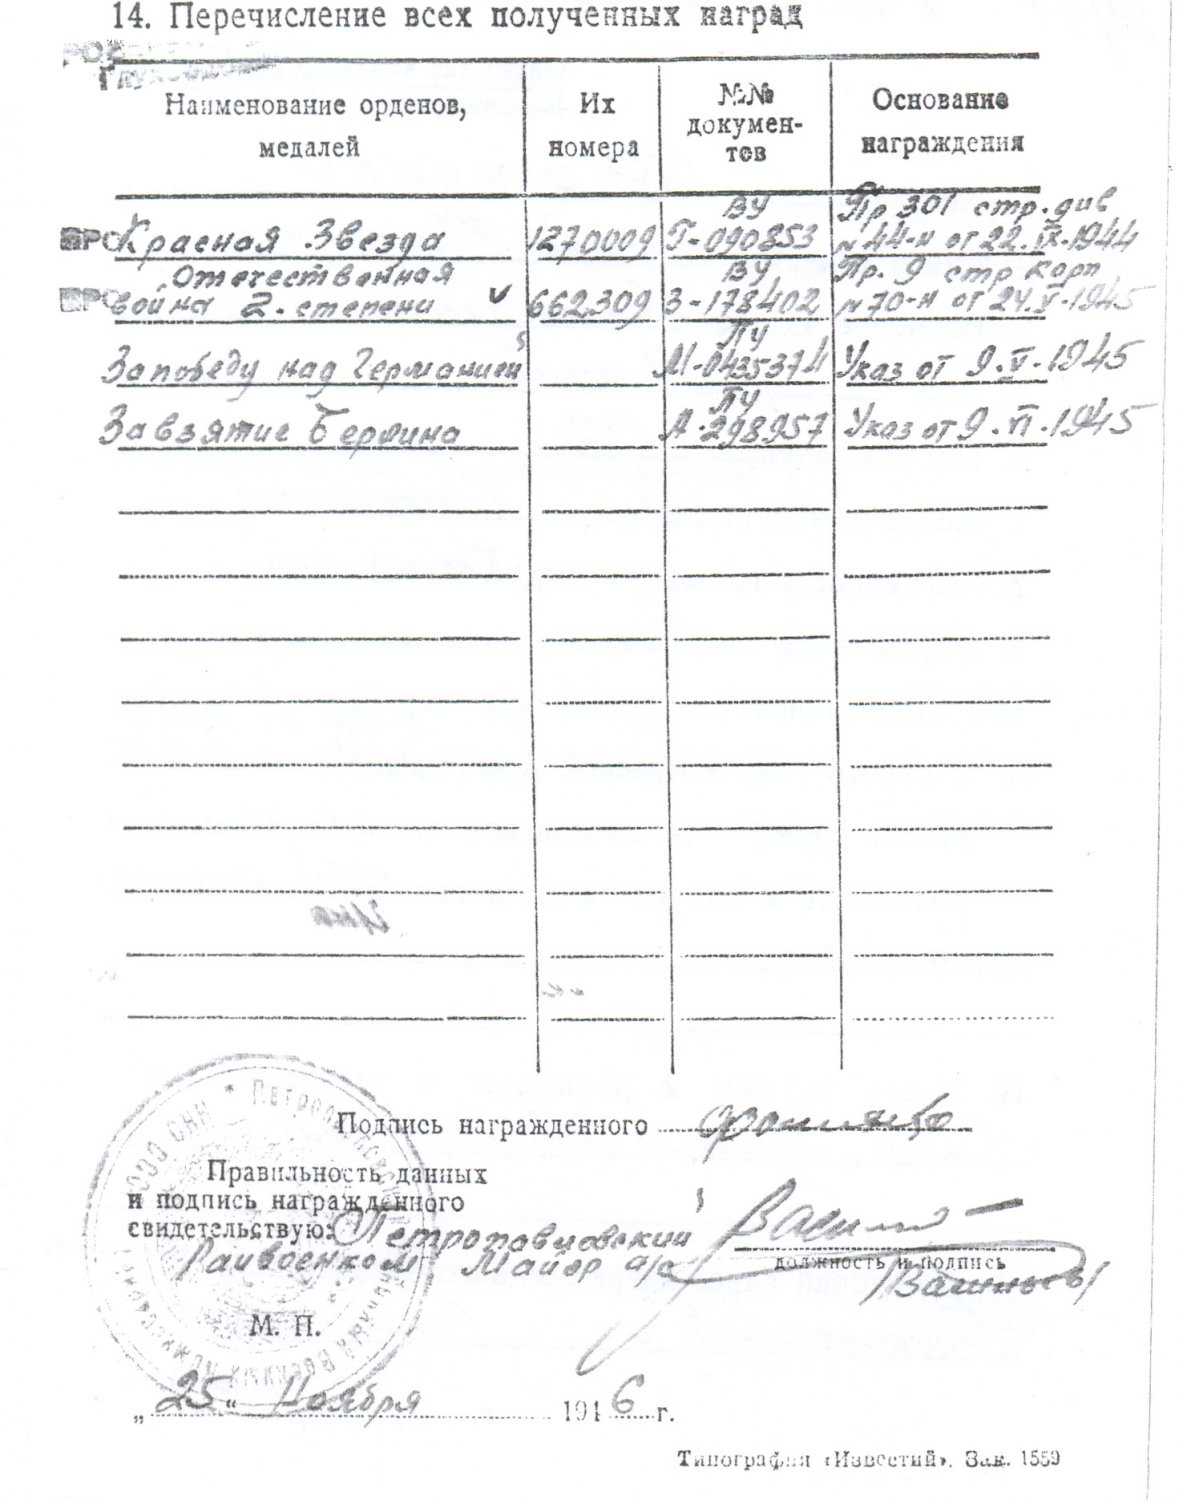 14. Перечисление всех полученных наград
Наименование орденов, медалей
Их номера
№№ докумен-тов
Основание награждения
ВУ Пр 301 стр. див
Красная Звезда 1270009 Г-090853 № 44-н от 22.IX.1944
Отечественная ВУ Пр. 9 стр корп
война 2. степени v 662309 З-178402 № 70-н от 24.V-1945
ПУ
За победу над Германией М-0435374 Указ от 9.V-1945
ПУ
За взятие Берлина А-298957 Указ от 9.VI-1945
Подпись награжденного
Правильность данных
и подпись награжденного
свидетельствую: Петропавловский
Райвоенком Майор а/с
должность и подпись
М. П.
„25“ Ноября 1946 г.
Типография «Известий». Зак. 1559